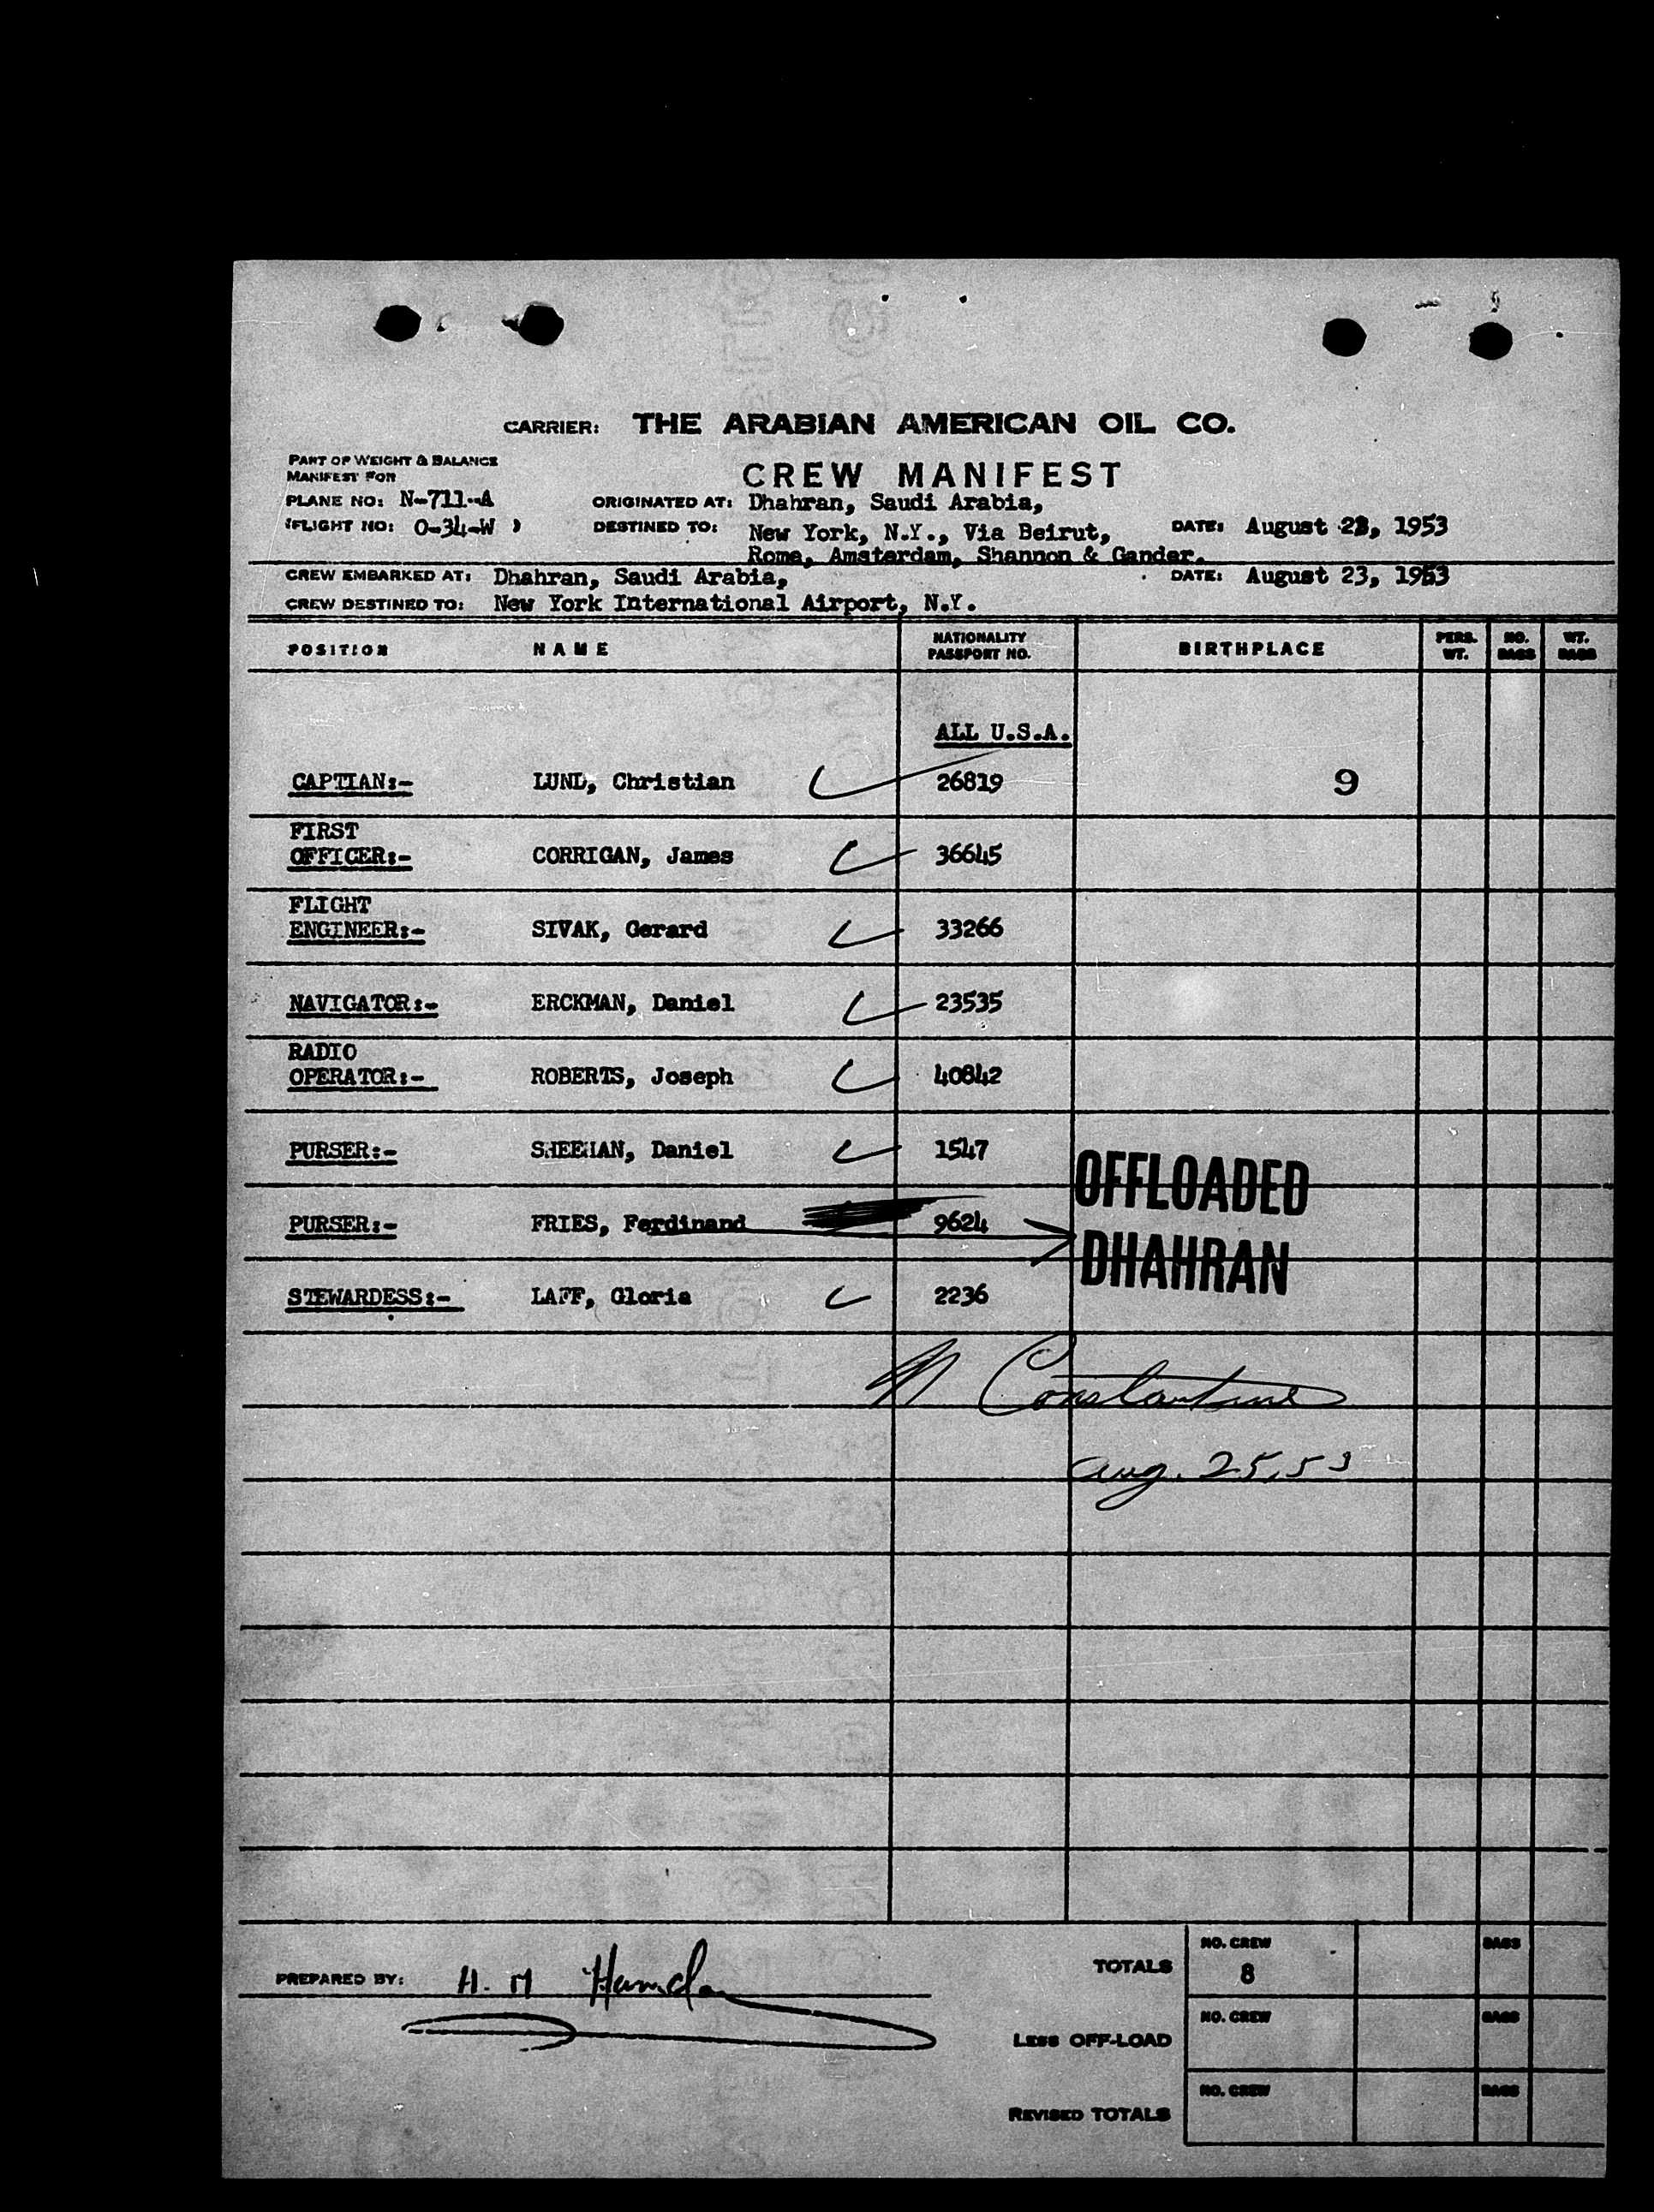 CARRIER: THE ARABIAN AMERICAN OIL CO.
PART OF WEIGHT & BALANCE
MANIFEST FOR
CREW MANIFEST
PLANE NO: N-711-A
ORIGINATED AT: Dhahran, Saudi Arabia,
(FLIGHT NO: O-34-W )
DESTINED TO: New York, N.Y., Via Beirut,
DATE: August 23, 1953
Rome, Amsterdam, Shannon & Gander.
CREW EMBARKED AT: Dhahran, Saudi Arabia,
DATE: August 23, 1953
CREW DESTINED TO: New York International Airport, N.Y.
POSITION NAME NATIONALITY PASSPORT NO. BIRTHPLACE PERS. WT. NO. BAGS WT. BAGS
ALL U.S.A.
CAPTIAN:- LUND, Christian 26819 9
FIRST
OFFICER:- CORRIGAN, James 36645
FLIGHT
ENGINEER:- SIVAK, Gerard 33266
NAVIGATOR:- ERCKMAN, Daniel 23535
RADIO
OPERATOR:- ROBERTS, Joseph 40842
PURSER:- SHEEHAN, Daniel 1547
OFFLOADED
PURSER:- FRIES, Ferdinand 9624
DHAHRAN
STEWARDESS:- LAFF, Gloria 2236
Constantine
Aug. 25, 53
PREPARED BY: H. M
TOTALS NO. CREW 8 BAGS
LESS OFF-LOAD NO. CREW BAGS
REVISED TOTALS NO. CREW BAGS